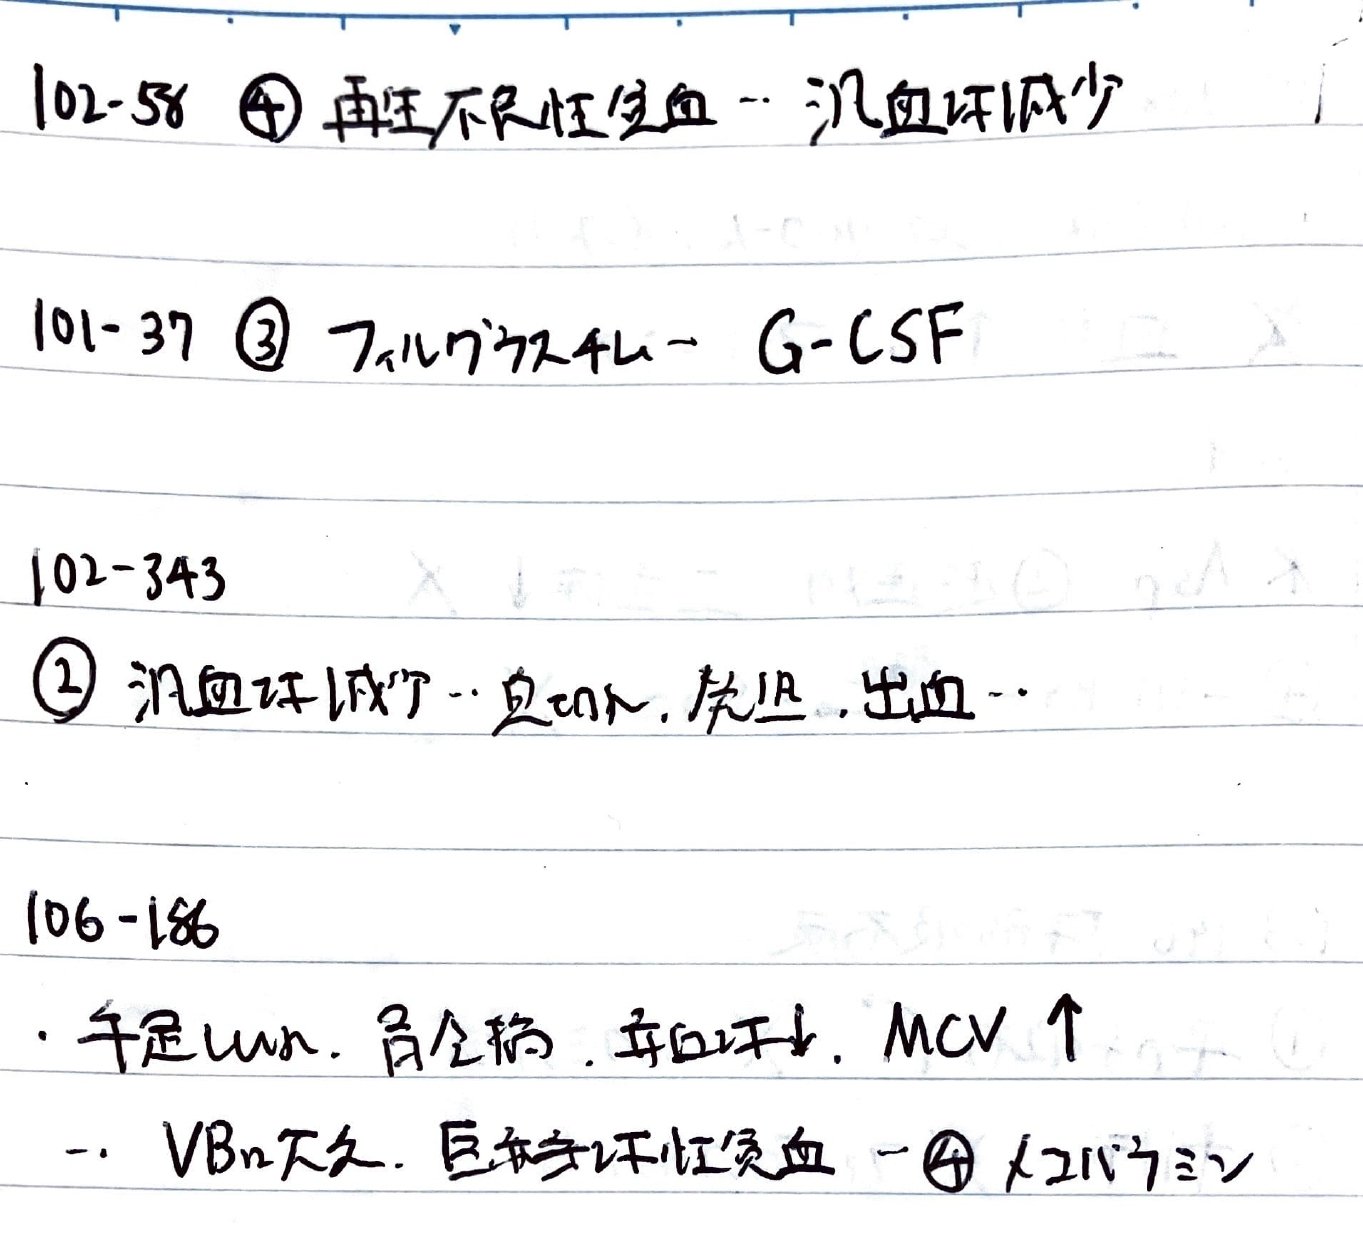 102-58 ④ 再生不良性貧血 … 汎血球減少
101-37 ③ フィルグラスチム … G-CSF
102-343
② 汎血球減少 … 息切れ、発熱、出血 …
106-186
・手足しびれ、胃全摘、赤血球↓、MCV ↑
… VB12欠乏、巨赤芽球性貧血 - ④ メコバラミン